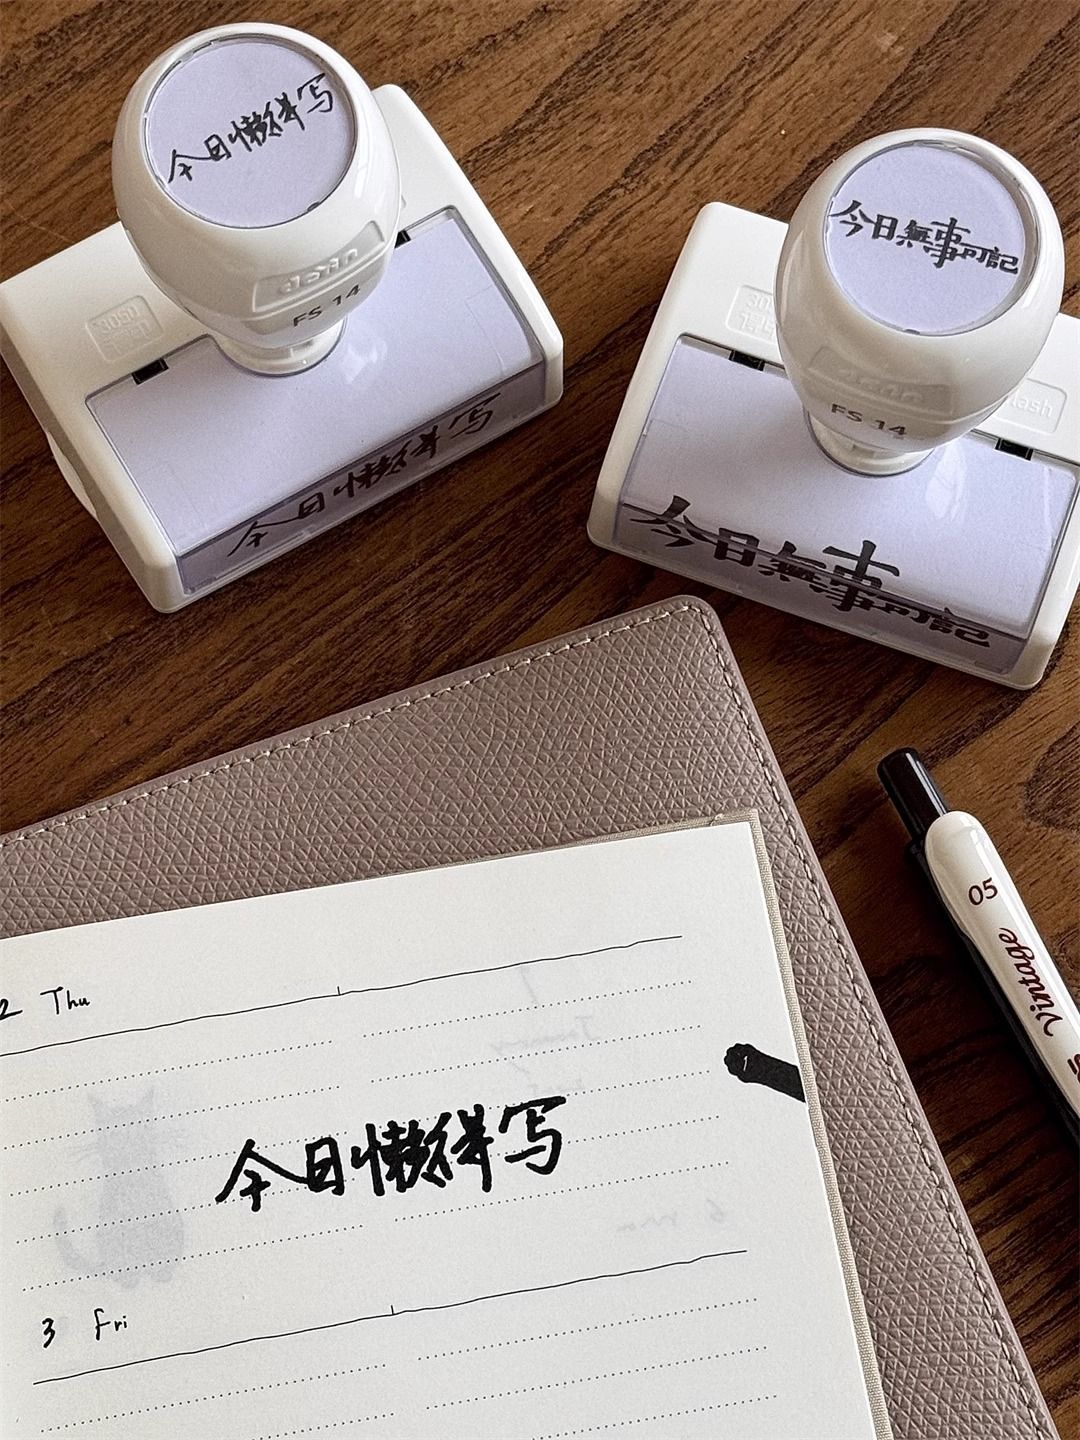 今日懒得写
dsin
FS 14
3050
今日懒得写
今日無事可記
FS 14
flash
今日無事可記
05
Vintage
2 Thu
1
今日懒得写
3 Fri